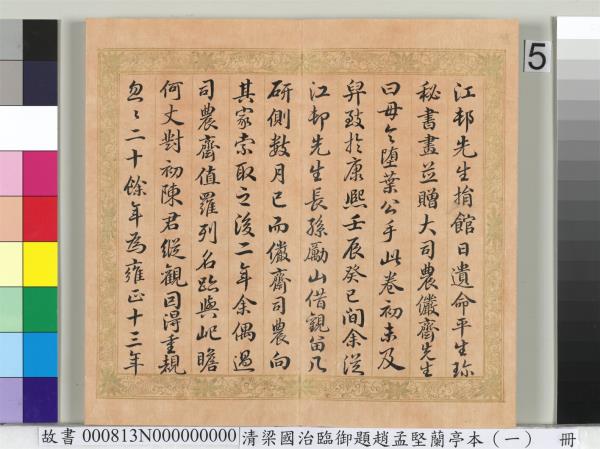 江邨先生捐館日遺命平生珎
秘書畫並贈大司農儼齋先生
曰毋令墮葉公手此卷初未及
舁致於康熙壬辰癸巳間余從
江邨先生長孫勵山借觀留几
研側數月已而儼齋司農向
其家索取之後二年余偶過
司農齋值羅列名跡與屺瞻
何丈對初陳君縱觀因得重覩
忽〻二十餘年為雍正十三年
5
故書 000813N000000000 清梁國治臨御題趙孟堅蘭亭本(一) 冊